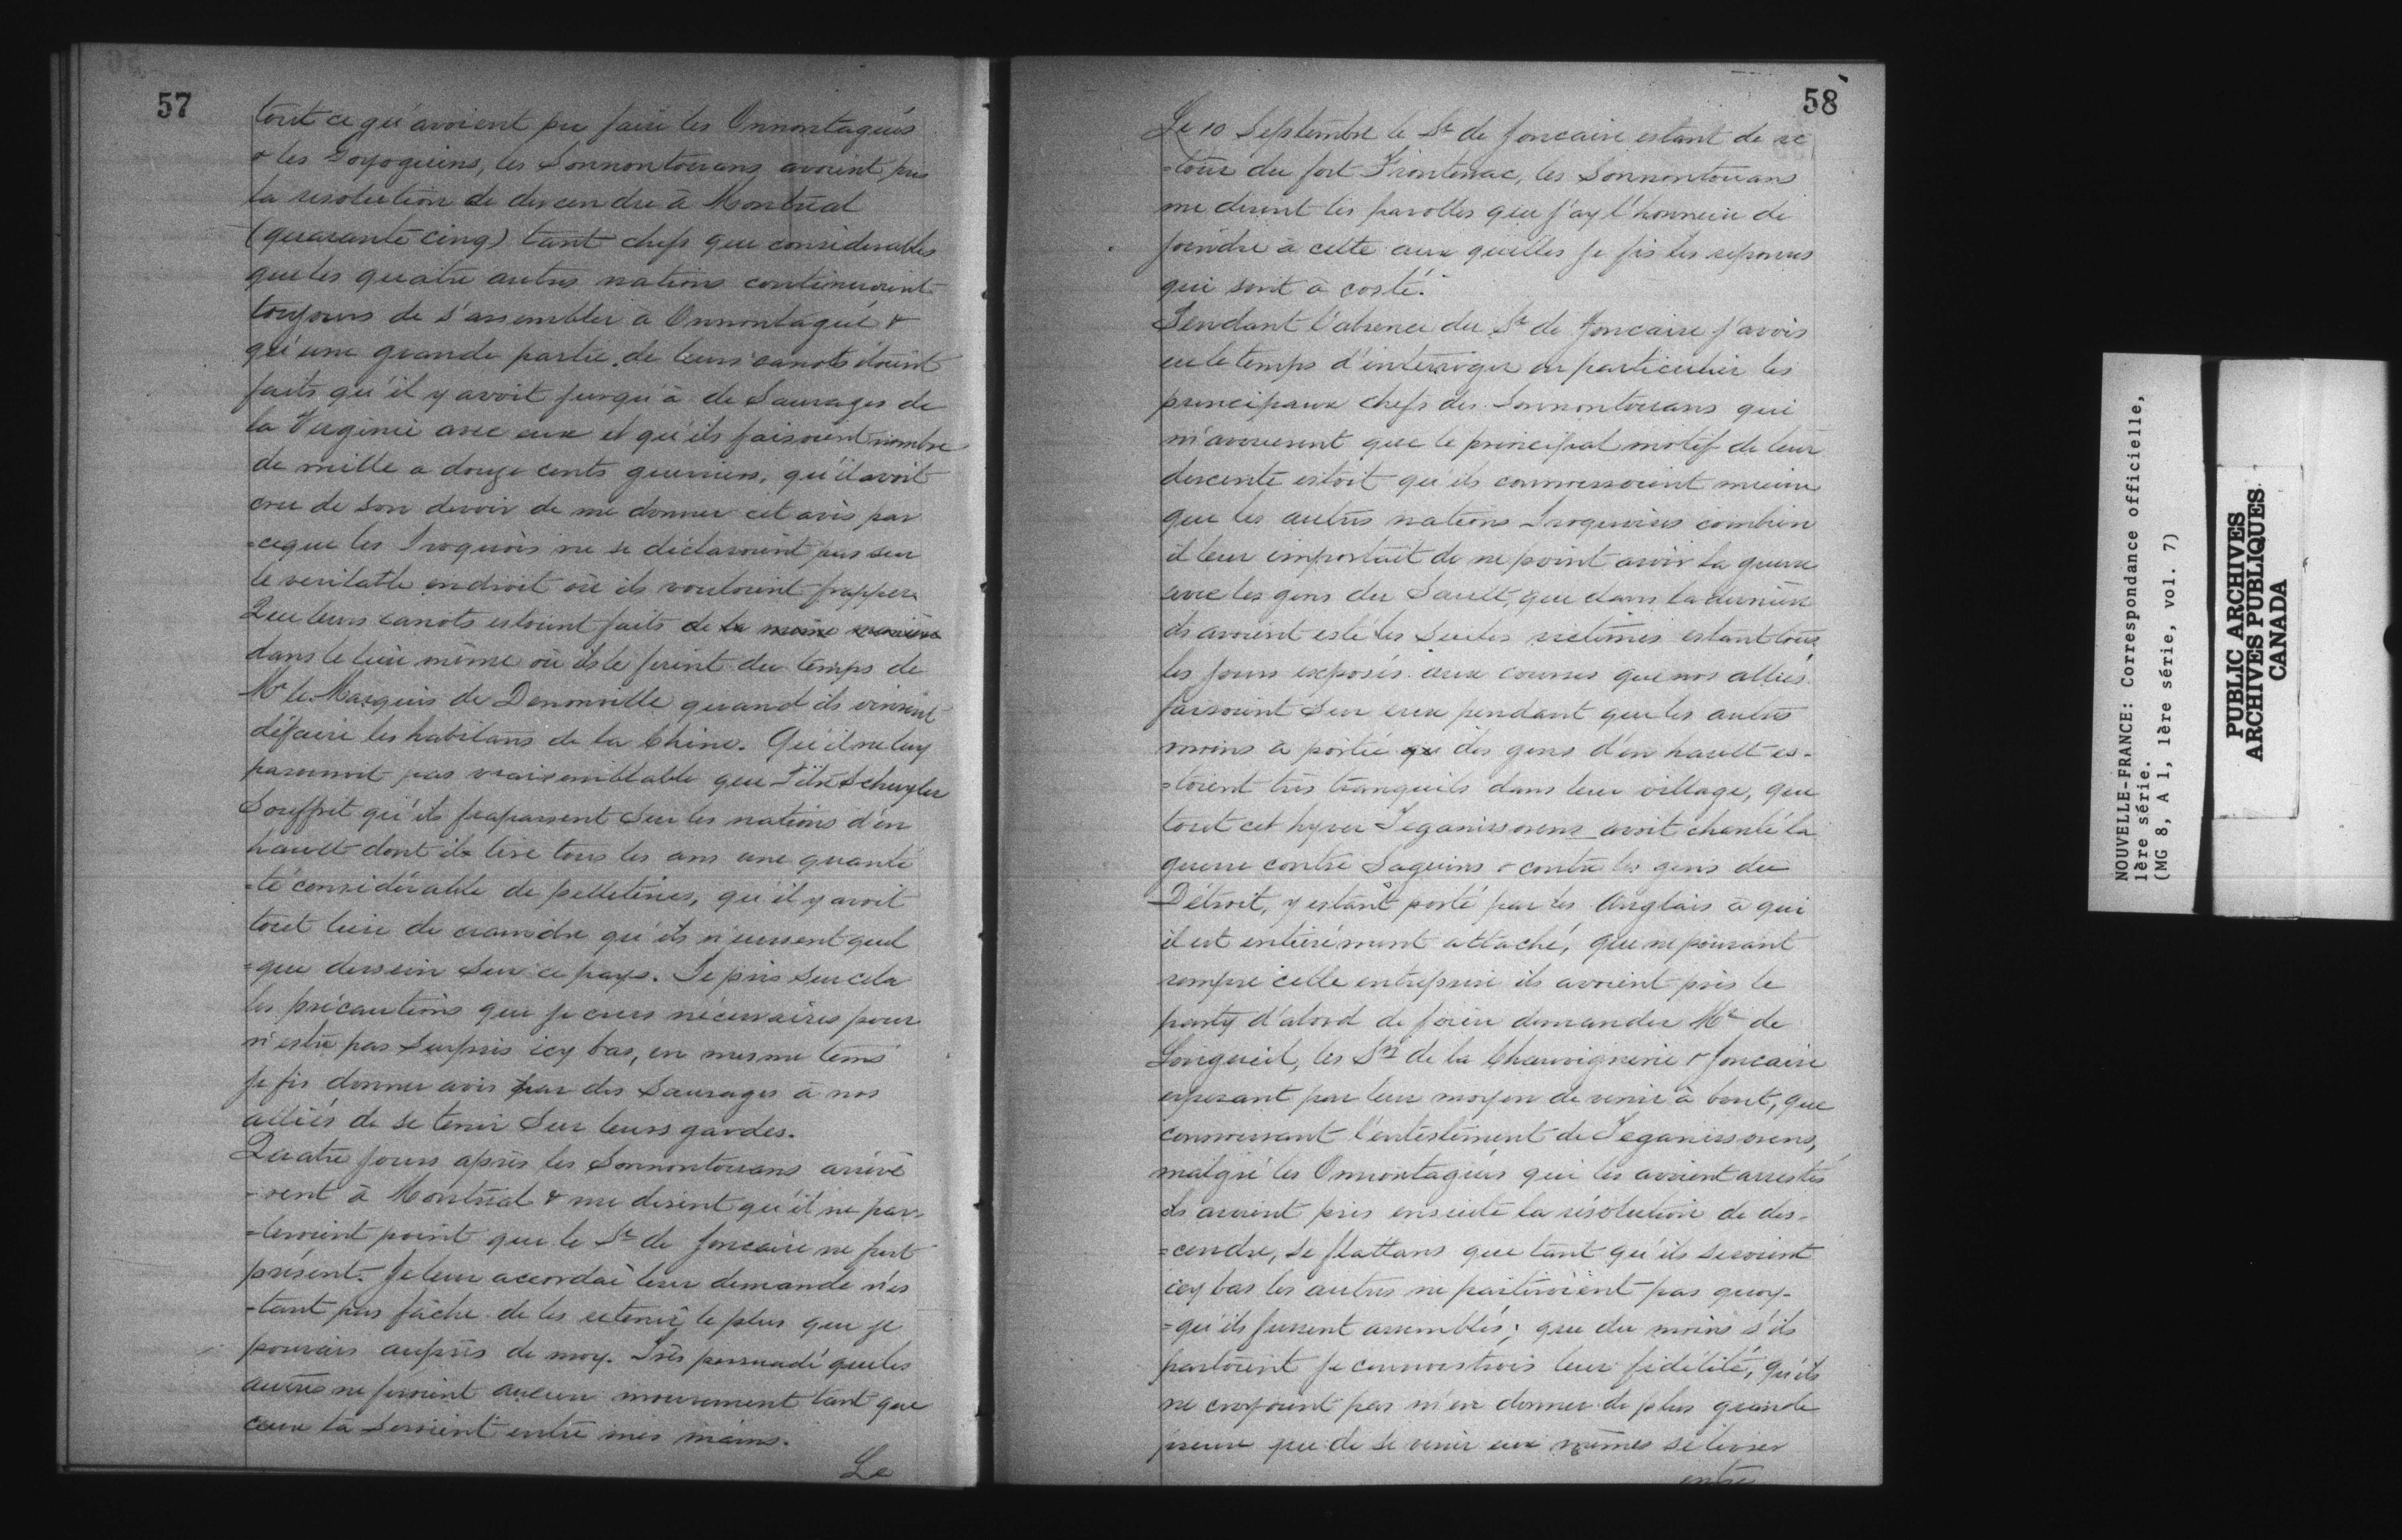 57
tout ce qu'avoient pu faire les Onnontagués
& les Goyoguins, les Sonnontouans avoient pris
la resolution de descendre à Montréal
(quarante cinq) tant chefs que considerables
que les quatre autres nations continuoient
toujours de s'assembler à Onnontagué &
qu'une grande partie de leurs canots étoient
faits qu'il y avoit jusqu'à de Sauvages de
la Virginie avec eux et qu'ils faisoient nombre
de mille a douze cents guerriers, qu'il avoit
cru de son devoir de me donner cet avis par
=ceque les Iroquois ne se déclaroient pas sur
le veritable endroit où ils vouloient frapper.
Que leurs canots estoient faits de la meme maniere
dans le lieu même où ils le firent du temps de
Mr le Marquis de Denonville quand ils vinrent
défaire les habitans de la Chine. Qu'il ne luy
paroissoit pas vraisemblable que Pitre Schuyler
Souffrit qu'ils frapassent sur les nations d'en
hault dont ils tire tous les ans une quanti
=té considérable de pelleteries, qu'il y avoit
tout lieu de craindre qu'ils n'eussent quel
=que dessein sur ce pays. Je pris sur cela
les précautions que je crus nécessaires pour
n'estre pas surpris icy bas, en mesme tems
je fis donner avis par des Sauvages à nos
alliés de se tenir sur leurs gardes.
Quatre jours après les Sonnontouans arrivè
-rent à Montréal & me dirent qu'il ne par
-leroient point que le Sr de Joncaire ne fut
présent. Je leur accordai leur demande n'es
-tant pas fâché de les retenir le plus que je
pouvais auprès de moy. Très persuadé que les
autres ne feroient aucun mouvement tant que
ceux la seroient entre mes mains.
Le
58
Le 10 Septembre le Sr de Joncaire estant de re
=tour du fort Frontenac, les Sonnontouans
me dirent les parolles que j'ay l'honneur de
joindre à cette aux quelles je fis les reponses
qui sont à costé.
Pendant l'absence du Sr de Joncaire j'avois
eu le temps d'interroger en particulier les
principaux chefs des Sonnontouans qui
m'avouerent que le principal motif de leur
descente estoit qu'ils connoissoient mieux
que les autres nations Iroquoises combien
il leur importait de ne point avoir la guerre
avec les gens du Sault, que dans la dernière
ils avoient esté les seules victimes estant tous
les jours exposés aux courses que nos alliés
faisoient sur eux pendant que les autres
moins à portée que des gens d'en hault es-
=toient très tranquils dans leur village, que
tout cet hyver Teganissorens avoit chanté la
guerre contre Saguins & contre les gens du
Détroit, y estant porté par les Anglais à qui
il est entièrement attaché, que ne pouvant
rompre cette entreprise ils avoient pris le
party d'abord de faire demander Mr de
Longueil, les Srs de la Chauvignerie & Joncaire
esperant par leur moyen de venir à bout, que
connoissant l'entestement de Teganissorens,
malgré les Onnontagués qui les avoient arrestés
ils avoient pris ensuite la résolution de des-
=cendre, se flattans que tant qu'ils seroient
icy bas les autres ne partiroient pas quoy-
=qu'ils fussent assemblés; que du moins s'ils
partoient je connoistrois leur fidélité, qu'ils
ne croyoient pas m'en donner de plus grande
preuve que de se venir eux mêmes se livrer
entre
NOUVELLE-FRANCE: Correspondance officielle,
1ère série.
(MG 8, A 1, 1ère série, vol. 7)
PUBLIC ARCHIVES
ARCHIVES PUBLIQUES
CANADA